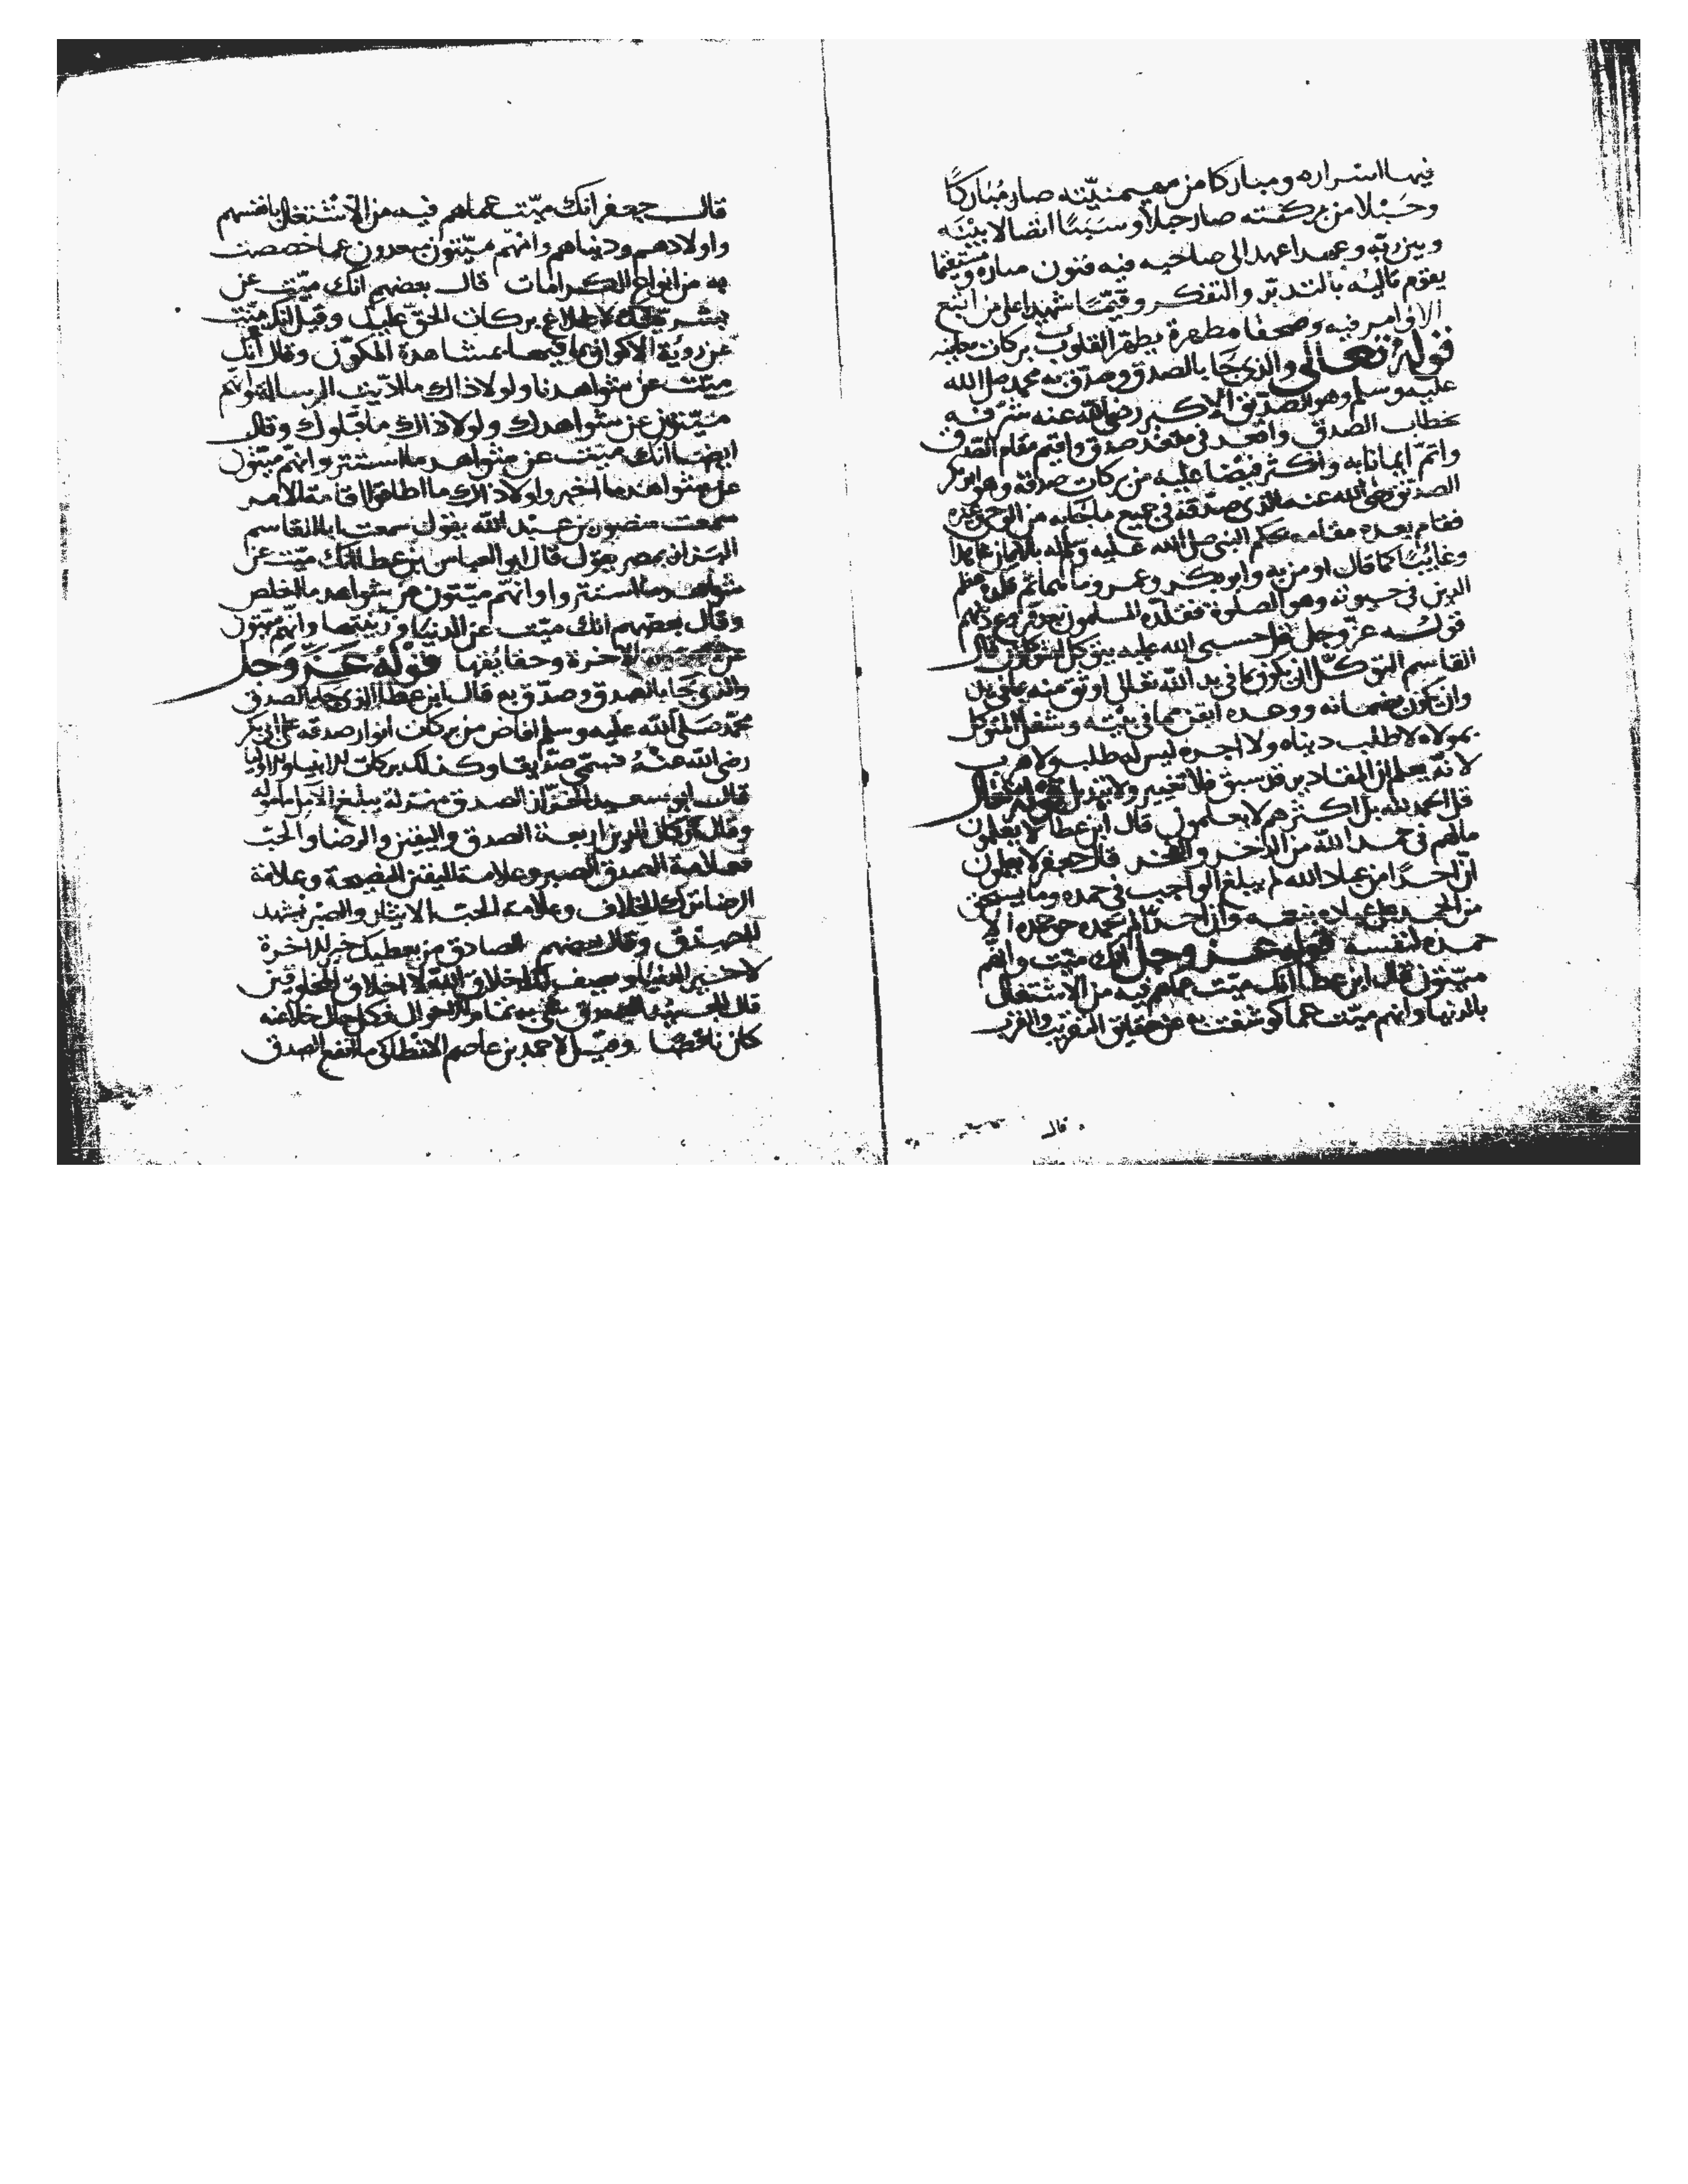 فيها اسراره ومباركا من مهيمنيته صار مباركا
وحبلا من بركته صار حبلا وسببا اتصالا بينه
وبين ربه وعهدا عهد الى صاحبه فيه فنون مباره
يقوم تاليه بالتدبر والتفكر وقيما شهيدا على من اتبع
الاوامر فيه وصحفا مطهرة يطهر القلوب بركات
قوله تعالى والذى جا بالصدق وصدق به محمد صلى الله
عليه وسلم وهو الصديق الاكبر رضى الله عنه شرف
بخطاب الصدق واقعد فى مقعد صدق واقيم مقام الصدق
واتم ايمانا به واكثر فيضا عليه من بركات صدقه وهو ابو بكر
الصديق رضى الله عنه الذى صدقه فى جميع ما جا به من الوحى وغيره
فقام بعده مقامه بحكم النبى صلى الله عليه وسلم له بالايمان
وغائبا كما قال اومن به وابو بكر وعمر وما هما ثم
الدين فى حيوته وهو الصلوة فقلده المسلمون
قوله عز وجل قل حسبى الله عليه يتوكل المتوكلون قال
القاسم التوكل ان يكون بما فى يد الله تعالى اوثق منه بما فى يده
وان يكون بضمانه ووعده ايقن مما فى بيته وشغل المتوكل
بمولاه لا طلب دنياه ولا اجره ليس له طلب ولا هرب
لانه يعلم ان المقادير قد سبق فلا تغيير ولا تبديل قوله تعالى
قل الحمد لله بل اكثرهم لا يعلمون قال ابن عطا لا يعلمون
مالهم فى حمد الله من الذخر والفخر قال جعفر لا يعلمون
ان احدا من عباد الله لم يبلغ الواجب فى حمده وما يستحق
من الحمد على عباده بنعمه وان احدا لم يحمده حق حمده الا
حمده لنفسه قوله عز وجل انك ميت وانهم
ميتون قال ابن عطا انك ميت عما هم فيه من الاشتغال
بالدنيا وانهم ميتون عما كوشفت به من حقايق التقريب والقرب
قال
قال جعفر انك ميت عما هم فيه من الاشتغال بانفسهم
واولادهم ودنياهم وانهم ميتون مبعدون عما خصصت
به من انواع الكرامات قال بعضهم انك ميت عن
بشريتك لاطلاع بركات الحق عليك وقيل انك ميت
عن روية الاكوان بما فيها بمشاهدة المكون وقال انك
ميت عن شواهدنا ولولا ذاك ما اديت الرسالة وانهم
ميتون عن شواهدك ولولا ذاك ما قبلوك وقال
ايضا انك ميت عن شواهد ما استتر وانهم ميتون
عن شواهد ما اخبر ولولا ذاك ما اطاقوا اقامة الامر
سمعت منصور بن عبد الله يقول سمعت ابا القاسم
البزاز بمصر يقول قال ابو العباس بن عطا انك ميت عن
شواهد ما استتر وانهم ميتون عن شواهد ما اخلص
وقال بعضهم انك ميت عن الدنيا وزينتها وانهم ميتون
عن الاخرة وحقايقها قوله عز وجل
والذى جا بالصدق وصدق به قال ابن عطا الذى جا بالصدق
محمد صلى الله عليه وسلم افاض من بركات انوار صدقه على ابى بكر
رضى الله عنه فسمى صديقا وكذلك بركات الانبيا والاوليا
قال ابو سعيد الخزاز الصدق منزلة يبلغ الامل مامولة
وقال اركان الدين اربعة الصدق واليقين والرضا والحب
فعلامة الصدق الصبر وعلامة اليقين النصيحة وعلامة
الرضا ترك الخلاف وعلامة الحب الايثار والصبر يشهد
للصدق وقال بعضهم الصادق من يعطيك خير الاخرة
لا خير الدنيا ويصف لك اخلاق الله لا اخلاق المخلوقين
قال الجنيد الصدق على به تمام الاحوال فكل حال خلا عنه
كان ناقصا وقيل لاحمد بن عاصم الانطاكى ما انفع الصدق